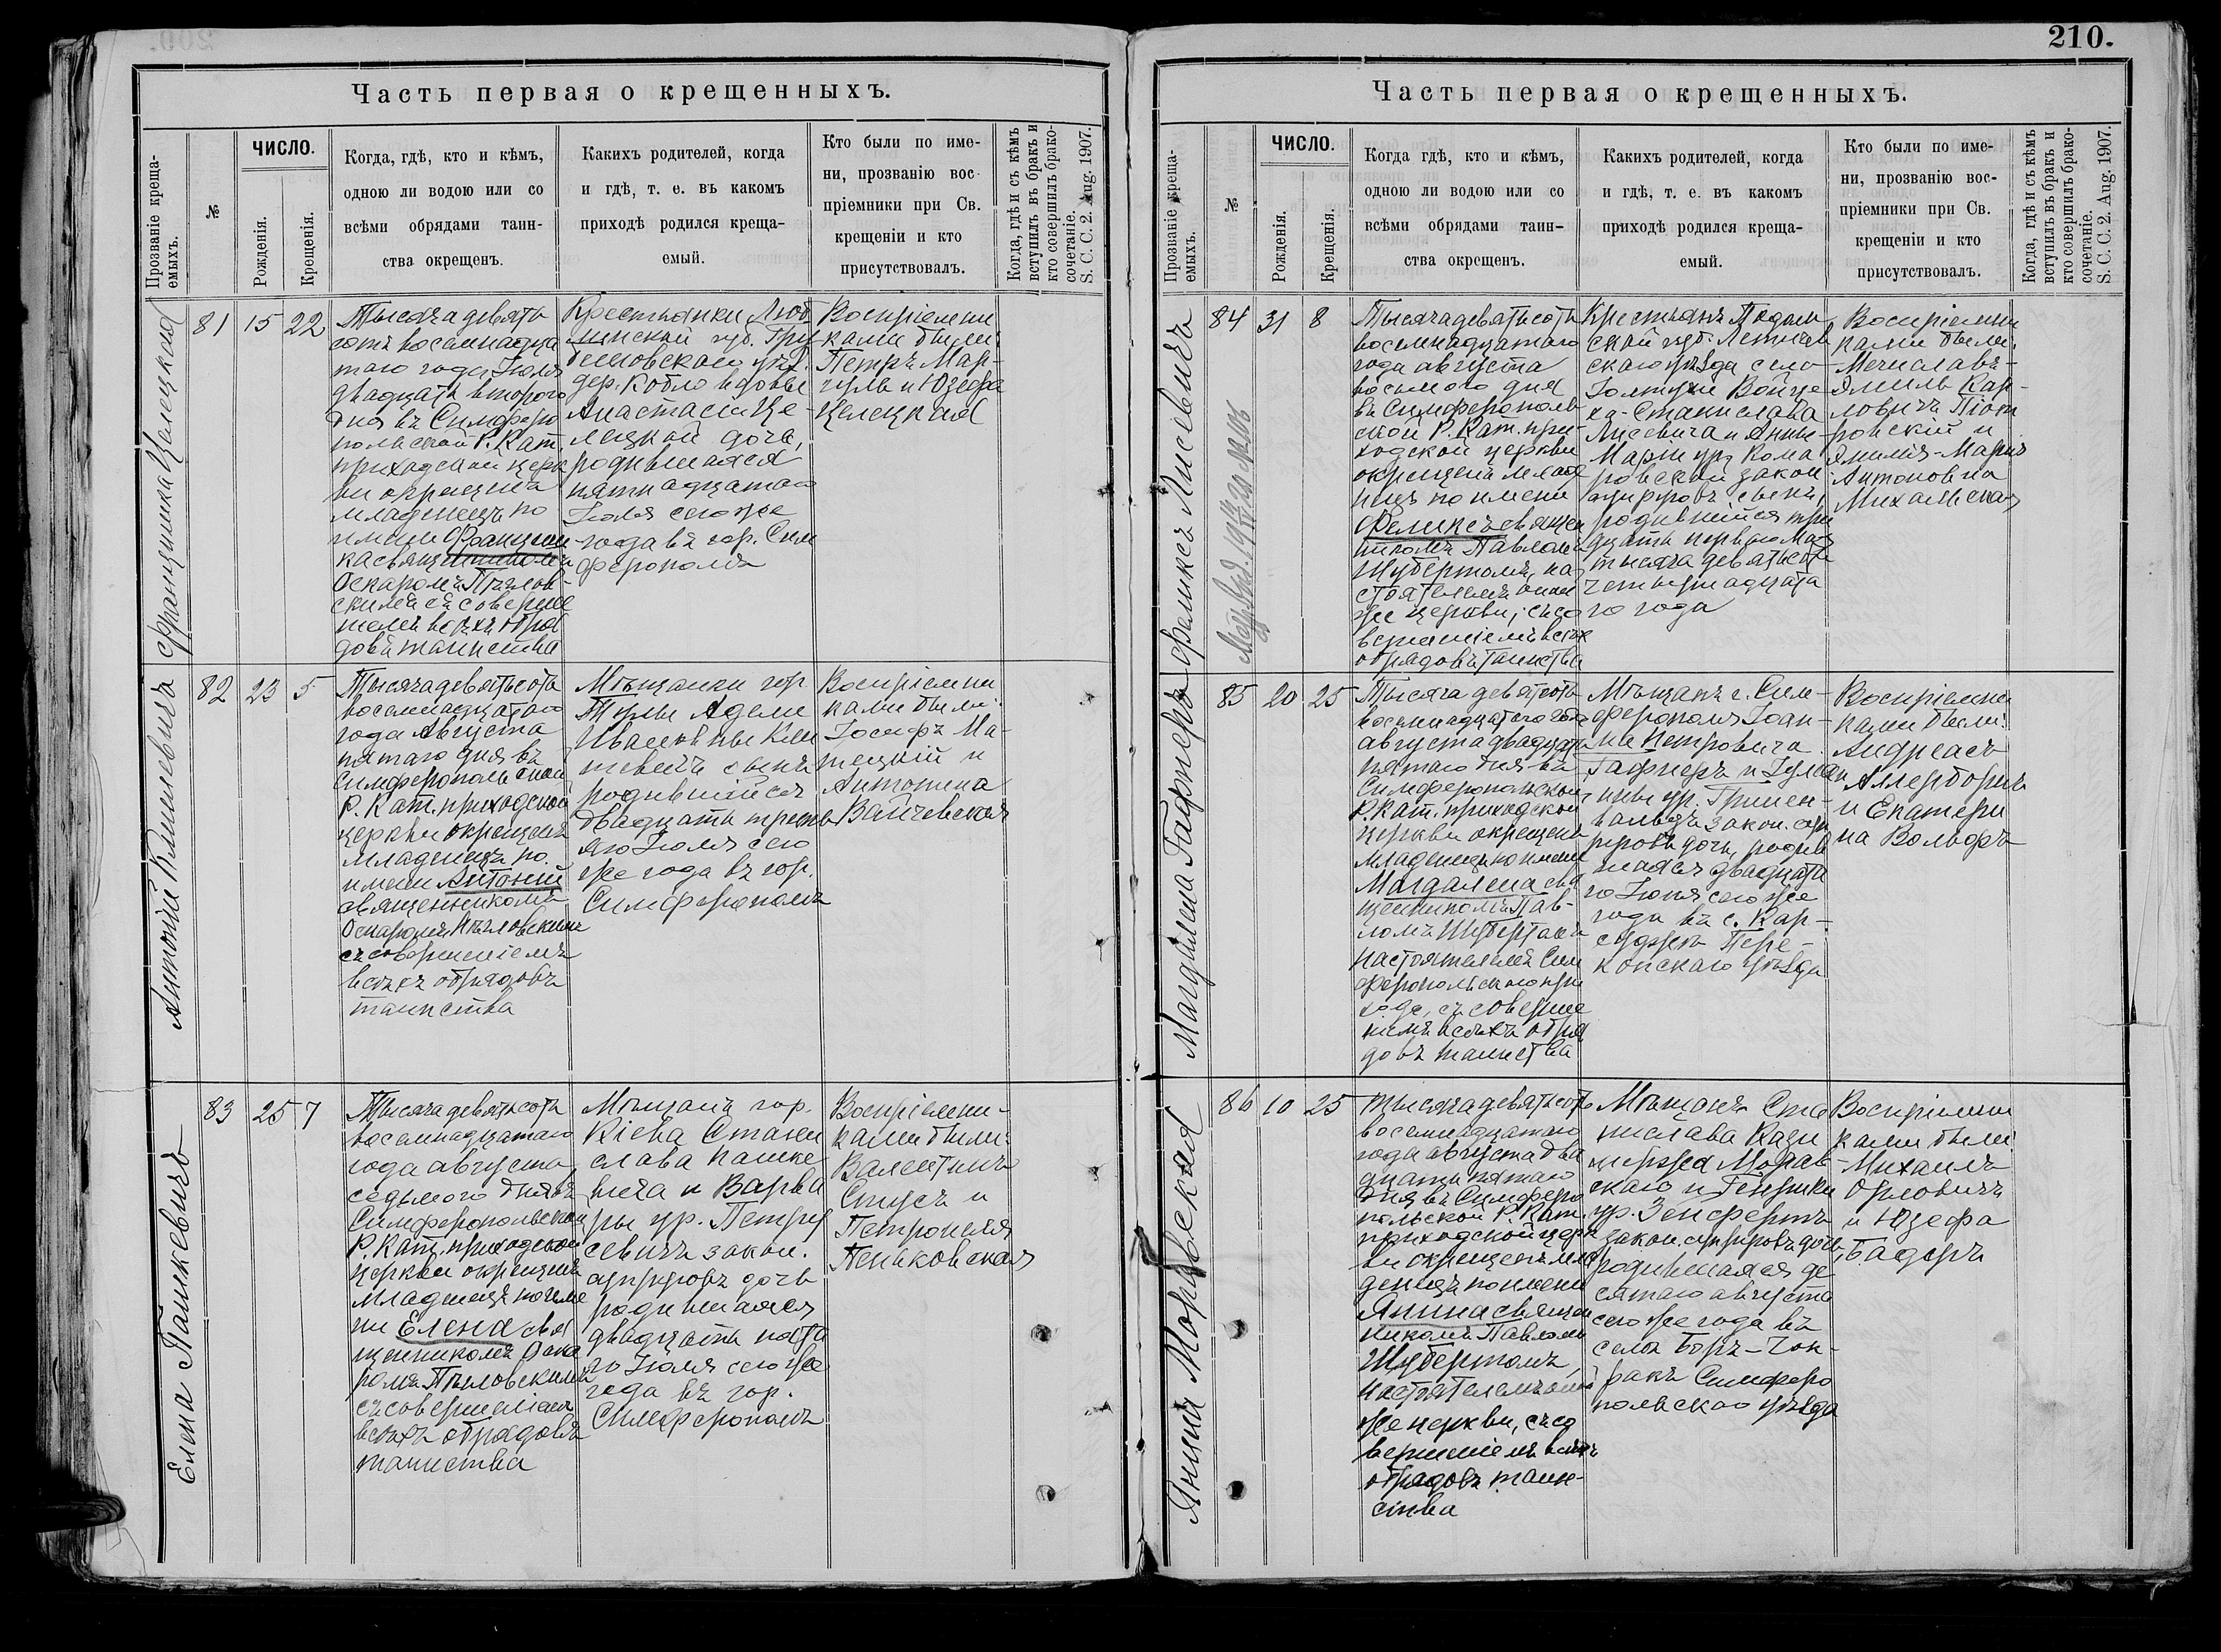 Часть первая о крещенныхъ.
Прозваніе креща-
емыхъ.
№
ЧИСЛО.
Рожденія.
Крещенія.
Когда, гдѣ, кто и кѣмъ,
одною ли водою или со
всѣми обрядами таин-
ства окрещенъ.
Какихъ родителей, когда
и гдѣ, т. е. въ какомъ
приходѣ родился креща-
емый.
Кто были по име-
ни, прозванію вос-
пріемники при Св.
крещеніи и кто
присутствовалъ.
Когда, гдѣ и съ кѣмъ
вступилъ въ бракъ и
кто совершилъ брако-
сочетаніе.
S. C. C. 2. Aug. 1907.
Францишка Целецкая
81
15
22
Тысяча девять
сотъ восемнадца
таго года Іюля
двадцать второго
дня въ Симферо
польской Р. Кат.
приходской церк
ви окрещена
младенецъ по
имени Францыш
ка священникомъ
Оскаромъ Пѣлов-
скимъ съ соверше
ніемъ всѣхъ обря
довъ таинства
Крестьянки Люб
линской губ. Гру
бешовскаго уѣз.
дер. Кобло вдовы
Анастасіи Це-
лецкой дочь,
родившаяся
пятнадцатаго
Іюля сего же
года въ гор. Сим
ферополѣ
Воспріемни
ками были:
Петръ Мар-
чуль и Юзефа
Целецкая
Антоній Климевичъ
82
23
5
Тысяча девятьсотъ
восемнадцатаго
года Августа
пятаго дня въ
Симферопольской
Р. Кат. приходской
церкви окрещенъ
младенецъ по
имени Антоній
священникомъ
Оскаромъ Пѣловскимъ
съ совершеніемъ
всѣхъ обрядовъ
таинства
Мѣщанки гор.
Тулы Адели
Ивановны Кли
мевичъ сынъ
родившійся
двадцать треть
яго Іюля сего
же года въ гор.
Симферополѣ
Воспріемни
ками были:
Іосифъ Ма-
тецкій и
Антонина
Вайчевская
Елена Пашкевичъ
83
25
7
Тысяча девятьсотъ
восемнадцатаго
года августа
седьмого дня въ
Симферопольской
Р. Кат. приходской
церкви окрещенъ
младенецъ по име
ни Елена свя
щенникомъ Оска
ромъ Пѣловскимъ
съ совершеніемъ
всѣхъ обрядовъ
таинства
Мѣщанъ гор.
Кіева Стани
слава Пашке
вича и Варва
ры ур. Петру
севичъ закон.
супруговъ дочь
родившаяся
двадцать пята
го Іюля сего же
года въ гор.
Симферополѣ
Воспріемни-
ками были:
Валентинъ
Стусъ и
Петронеля
Пеньковская
210.
Часть первая о крещенныхъ.
Прозваніе креща-
емыхъ.
№
ЧИСЛО.
Рожденія.
Крещенія.
Когда гдѣ, кто и кѣмъ,
одною ли водою или со
всѣми обрядами таин-
ства окрещенъ.
Какихъ родителей, когда
и гдѣ, т. е. въ какомъ
приходѣ родился креща-
емый.
Кто были по име-
ни, прозванію вос-
пріемники при Св.
крещеніи и кто
присутствовалъ.
Когда, гдѣ и съ кѣмъ
вступилъ въ бракъ и
кто совершилъ брако-
сочетаніе.
S. C. C. 2. Aug. 1907.
Феликсъ Лисевичъ
84
31
8
Тысяча девятьсотъ
восемнадцатаго
года августа
восьмого дня
въ Симферополь
ской Р. Кат. при-
ходской церкви
окрещенъ младе
нецъ по имени
Феликсъ священ
никомъ Павломъ
Шубертомъ, на-
стоятелемъ оной
же церкви, съ со
вершеніемъ всѣхъ
обрядовъ таинства
Крестьянъ Подоль
ской губ. Летичев
скаго уѣзда село
Войце
ха-Станислава
Лисевича и Анны-
Маріи ур. Кома
ровской закон
супруговъ сынъ,
родившійся три
дцать перваго
тысяча девятьсотъ
четырнадцата
го года
Воспріемни
ками были:
Мечиславъ-
Эмиль Кар-
ловичъ Піот
ровскій и
Эмилія-Марія
Антоновна
Михальская
Магдалина Гафнеръ
85
20
25
Тысяча девятьсотъ
восемнадцатаго года
августа двадцать
пятаго дня въ
Симферопольской
Р. Кат. приходской
церкви окрещена
младенецъ по имени
Магдалена свя
щенникомъ Пав-
ломъ Шубертомъ
настоятелемъ Сим
феропольскаго при
хода, съ соверше
ніемъ всѣхъ обря
довъ таинства
Мѣщанъ г. Сим-
ферополя Іоан-
на Петровича
Гафнеръ и Іуліан
ны ур. Гринен-
вальдъ закон. су
пруговъ дочь, родив
шаяся двадцата
го Іюля сего же
года въ с. Кар-
Пере-
копскаго уѣзда
Воспріемни
ками были:
Андреасъ
и Екатери
на Вольфъ
Янина Моравская
86
10
25
Тысяча девятьсотъ
восемнадцатаго
года августа два
дцать пятаго
дня въ Симферо
польской Р. Кат.
приходской церк
ви окрещенъ мла
денецъ по имени
Янина священ
никомъ Павломъ
Шубертомъ,
настоятелемъ оной
же церкви, съ со
вершеніемъ всѣхъ
обрядовъ таин-
ства
Мѣщанъ Ста
нислава Кази
мержа Морав
скаго и Генрики
ур. Зенфертъ
закон. супруговъ дочь,
родившаяся де
сятаго августа
сего же года въ
селѣ Бѣръ-Чок-
ракъ Симферо
польскаго уѣзда
Воспріемни
ками были:
Михаилъ
Орловичъ
и Юзефа
Бадоръ